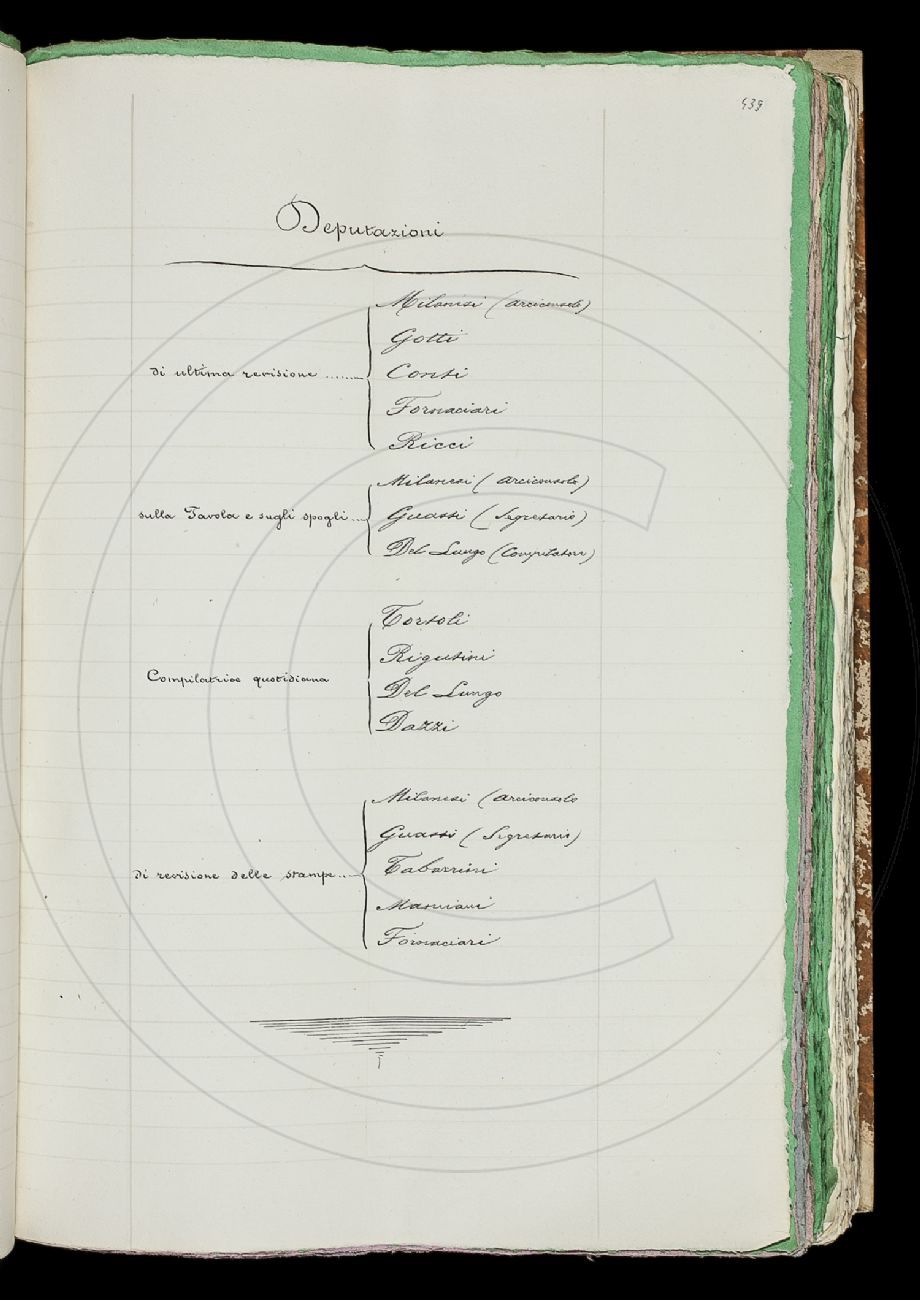 439
Deputazioni
Milanesi (Arciconsolo)
Gotti
di ultima revisione ........ Conti
Fornaciari
Ricci
Milanesi (Arciconsolo)
sulla Tavola e sugli spogli .... Guasti (Segretario)
Del Lungo (Compilatore)
Tortoli
Rigutini
Compilatrice quotidiana
Del Lungo
Dazzi
Milanesi (Arciconsolo
Guasti (Segretario)
di revisione delle stampe .... Tabarrini
Mamiani
Fornaciari